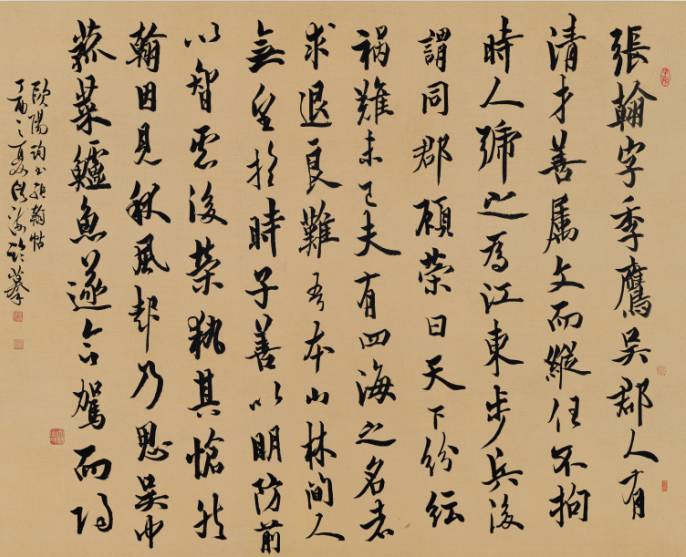 張翰字季鷹吳郡人有
清才善属文而縱任不拘
時人號之為江東步兵後
謂同郡顧榮曰天下紛紜
禍難未已夫有四海之名者
求退良難吾本山林間人
無望於時子善以明防前
以智慮後榮執其愴然
翰因見秋風起乃思吳中
菰菜鱸魚遂命駕而歸
歐陽詢書張翰帖
丁酉之夏臨摹